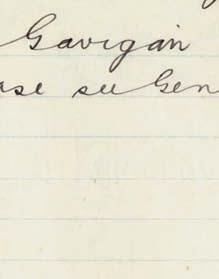 Gavigan
ase see Gen